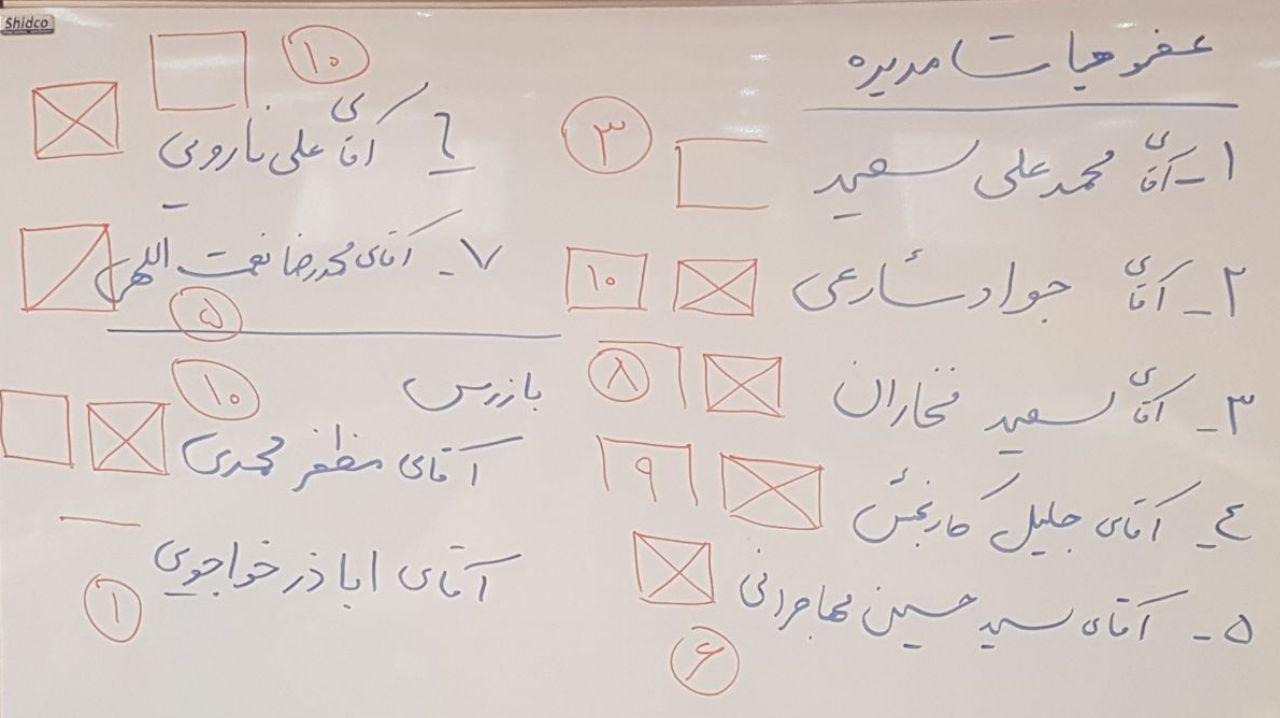 Shidco
عضو هیات مدیره
۱- آقای محمد علی سعید
۳
۲- آقای جواد شارعی
۱۰
۳- آقای سعید فخاران
۸
۴- آقای جلیل کاربخش
۹
۵- آقای سید حسین مهاجرانی
۶
۶ آقای علی ناروی
۱۰
۷- آقای محمدرضا نعمت اللهی
۵
بازرس
آقای مظفر محمدی
۱۰
آقای اباذر خواجوی
۱